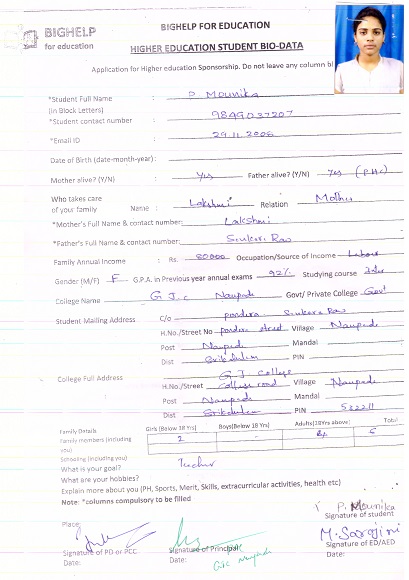 BIGHELP
for education
BIGHELP FOR EDUCATION
HIGHER EDUCATION STUDENT BIO-DATA
Application for Higher education Sponsorship. Do not leave any column bl
*Student Full Name : P Mounika
(in Block Letters)
*Student contact number : 9849037207
*Email ID : 29.11.2006
Date of Birth (date-month-year):
Mother alive? (Y/N) Yes Father alive? (Y/N) Yes (PHC)
Who takes care
of your family Name : Lakshmi Relation Mother
*Mother's Full Name & contact number: Lakshmi
*Father's Full Name & contact number: Sankara Rao
Family Annual Income : Rs. 80000 Occupation/Source of Income - Labour
Gender (M/F) F G.P.A. in Previous year annual exams 92% Studying course Inter
College Name G J C Naupada Govt/ Private College Govt
Student Mailing Address C/o : Sankara Rao
H.No./Street No street Village Naupada
Post Naupada Mandal
Dist Srikakulam PIN
College Full Address : G J College
H.No./Street College road Village Naupada
Post Naupada Mandal
Dist Srikakulam PIN 532211
Family Details Girls (Below 18 Yrs) Boys(Below 18 Yrs) Adults(18Yrs above) Total
Family members (including you) 2 -
Schooling (including you)
What is your goal? Teacher
What are your hobbies?
Explain more about you (PH, Sports, Merit, Skills, extracurricular activities, health etc)
Note: *columns compulsory to be filled
P. Mounika
Signature of student
Place:
M. Sarojini
Signature of PD or PCC
Signature of Principal
Signature of ED/AED
Date:
Date: GJC Naupada
Date: